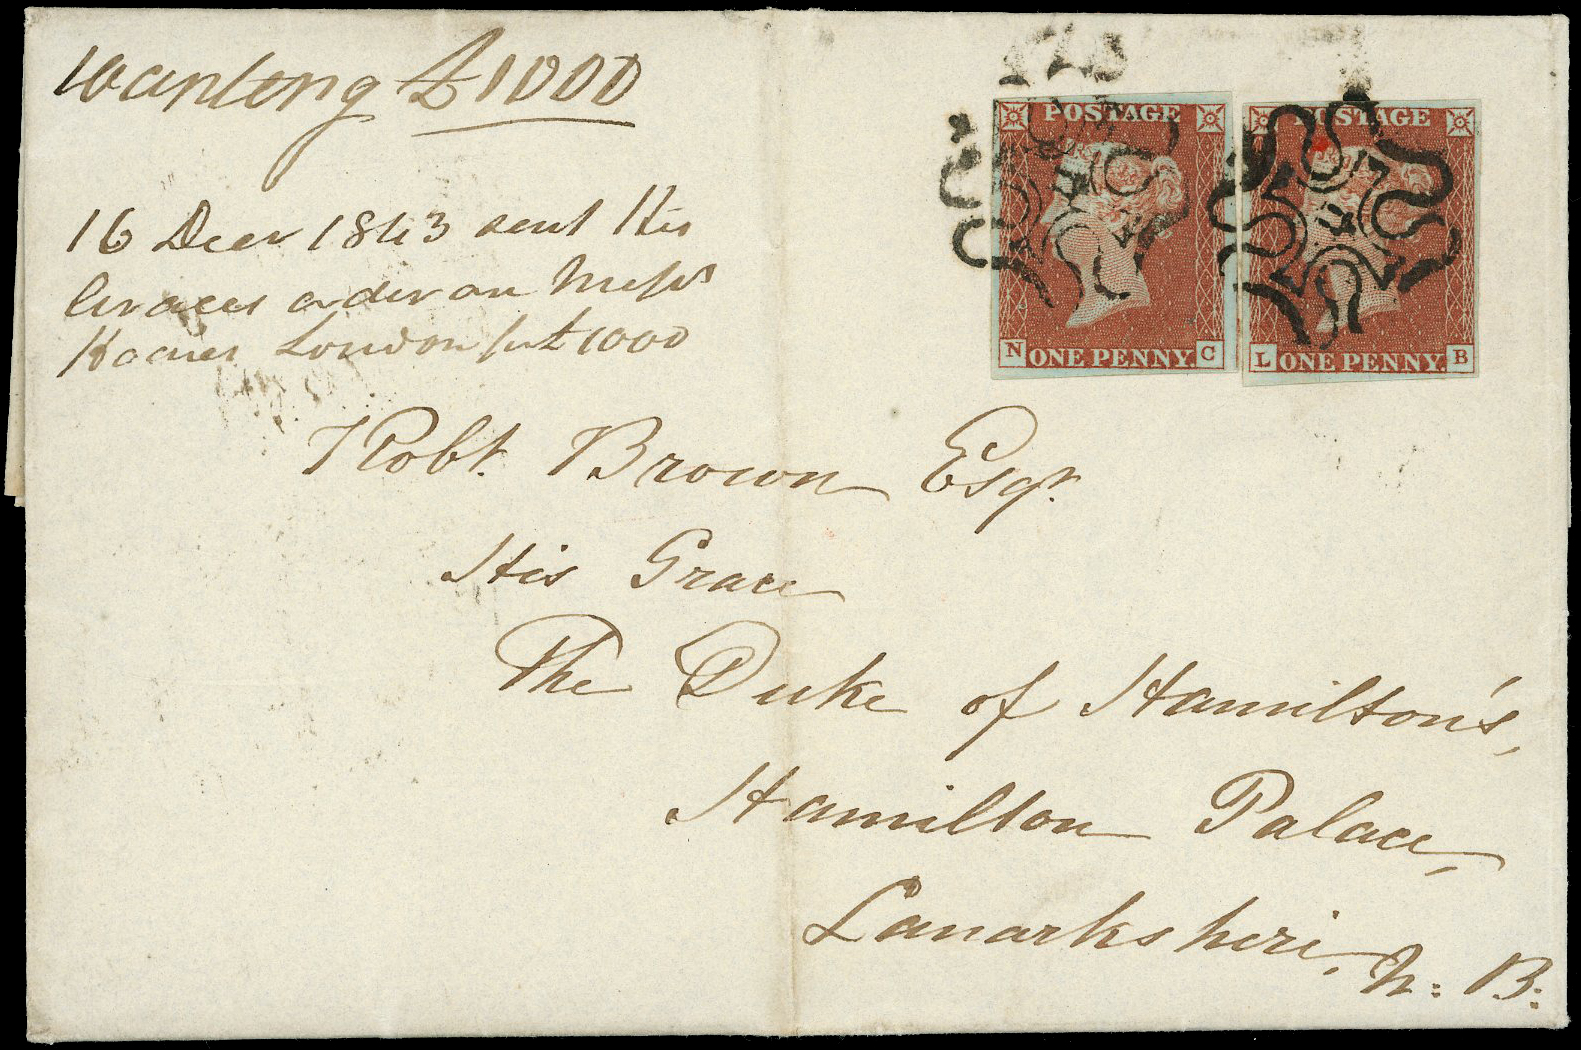 wanting £1000
16 Decer 1843 sent His
Graces order on Messrs
Hoares London for £1000
POSTAGE
N ONE PENNY. C
POSTAGE
L ONE PENNY. B
4
4
Robt. Brown Esqr.
His Grace
The Duke of Hamilton's,
Hamilton Palace,
Lanarkshire, N: B: